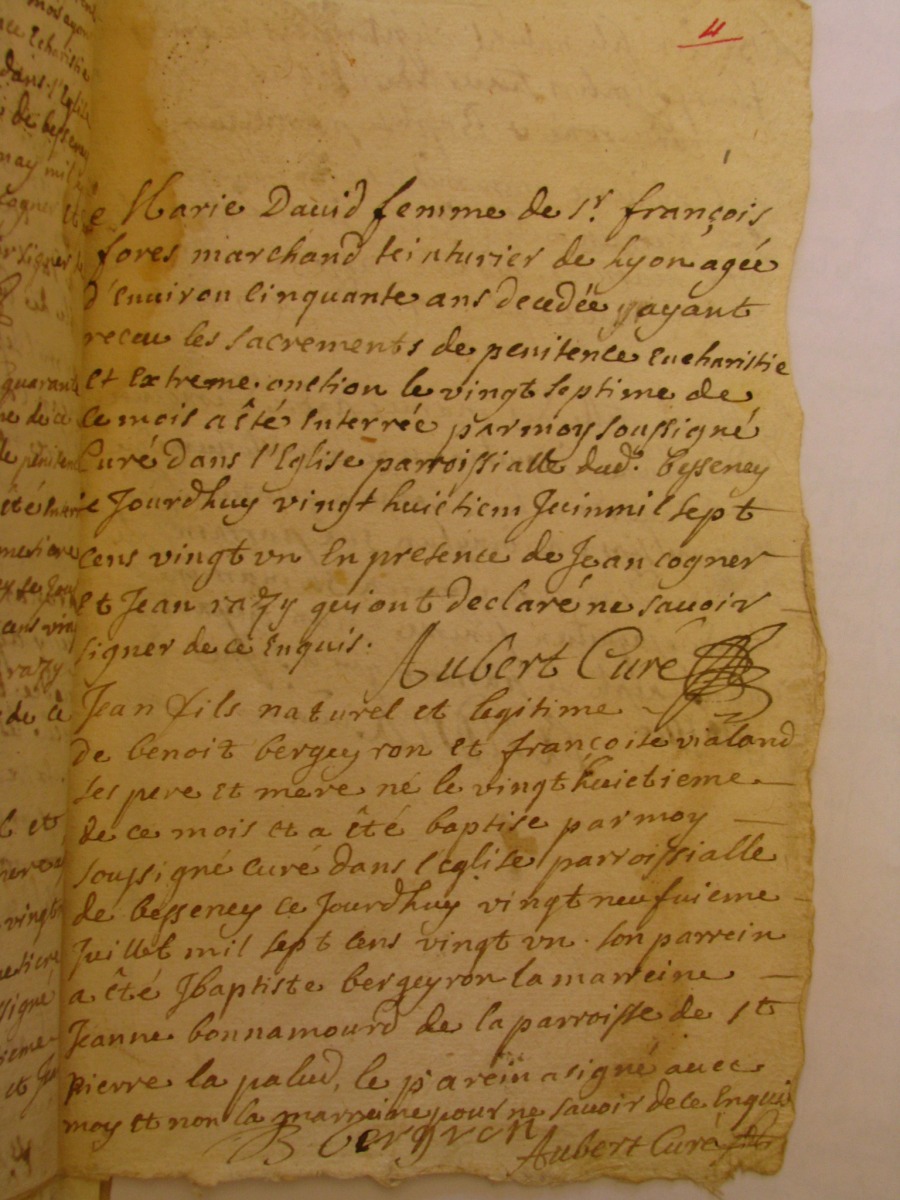 4
Marie Dauid femme de Sr. françois
fores marchand teinturier de Lyon agée
d'enuiron Cinquante ans decedée ayant
receu les sacrements de penitence Eucharistie
et Extreme-onction le vingt septime de
ce mois a êté Enterrée par moy soussigné
Curé dans l'Eglise parroissialle dud. besseney
ce Jourdhuy vingt huictiem Juin mil sept
cens vingt vn En presence de Jean cogner
Et Jean razy qui ont declaré ne sauoir
signer de ce Enquis.
Aubert Curé
Jean fils naturel et legitime
de benoit bergeyron et françoise vialand
ses pere et mere né le vingt huictieme
de ce mois et a êté baptise par moy
soussigné curé dans l'eglise parroissialle
de besseney ce Jourdhuy vingt neufuieme
Juillet mil sept cens vingt vn. son parrein
a êté Jbaptiste bergeyron la marreine
Jeanne bonnamourd de la parroisse de St
pierre la palud, le parein a signé auec
moy et non la marreine pour ne sauoir de ce Enqui
Aubert Curé